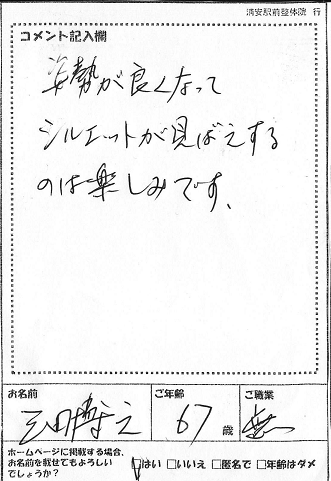 浦安駅前整体院 行
コメント記入欄
姿勢が良くなって
シルエットが見ばえする
のは楽しみです、
お名前
ご年齢
ご職業
67 歳
無
ホームページに掲載する場合、
お名前を載せてもよろしい
でしょうか?
□はい □いいえ □匿名で □年齢はダメ